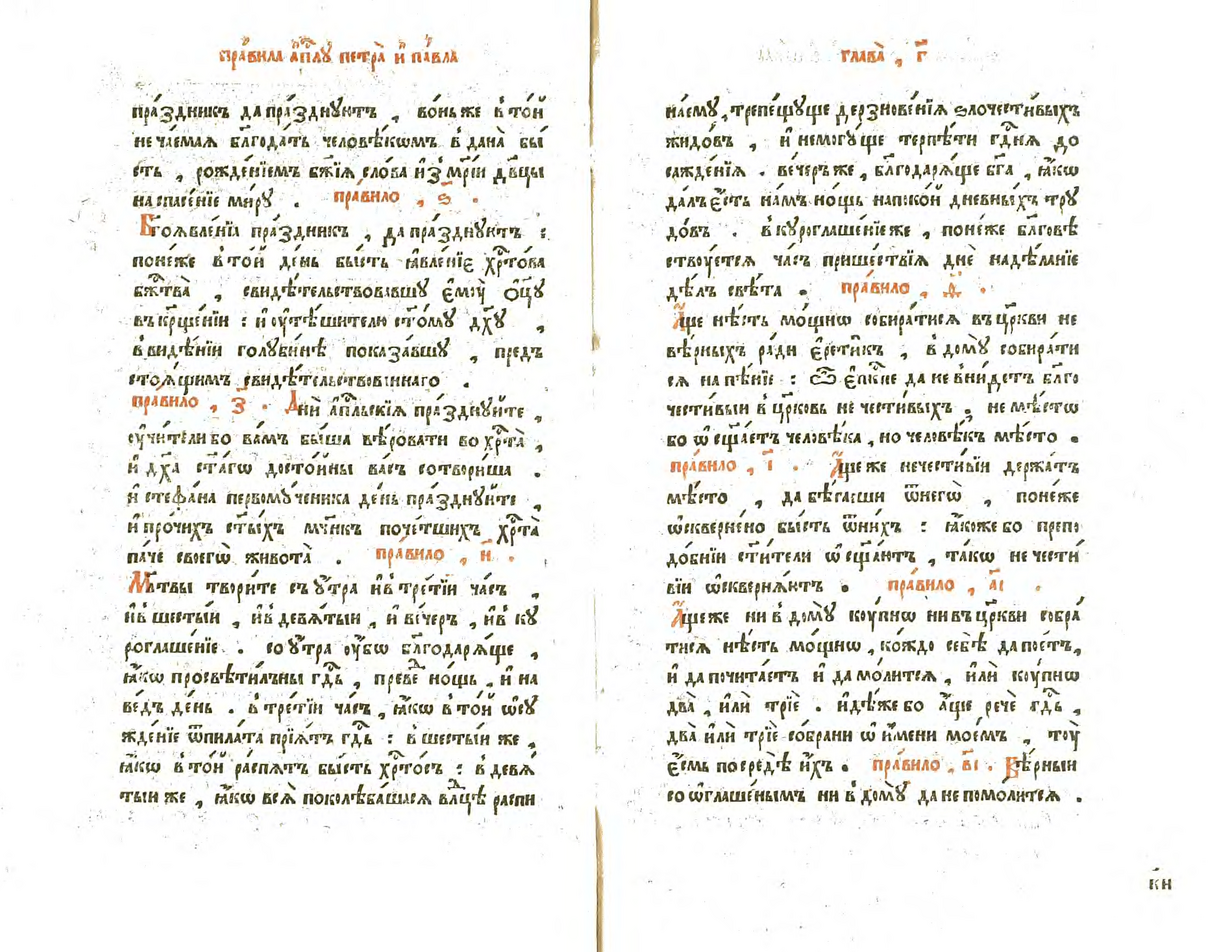 пра́вила а҆пⷭ҇лꙋ петра̀ и҆ па́вла
пра́здникъ да пра́зднꙋютъ , во́ньже в̾ то́й
неча́емаѧ бл҃года́ть человѣ́кѡмъ в̾дана̀ бы́
сть , рожде́нїемъ бж҃їѧ сло́ва и҆з̾ мр҃і́и дв҃цы
на спасе́нїе ми́рꙋ . пра́вило , ѕ҃ .
Бг҃оѧвле́нїѧ пра́здникъ , да пра́зднꙋютъ :
поне́же в̾ то́й де́нь бы́сть ꙗ҆вле́нїє хрⷭ҇то́ва
бжⷭ҇тва̀ , свидѣ́тельствовавшꙋ є҆мꙋ̀ ѻ҆ц҃ꙋ̀
въ кр҃ще́нїи : и҆ оу҆тѣ́шителю ст҃о́мꙋ дх҃ꙋ ,
в̾ видѣ́нїи голꙋби́нѣ показа́вшꙋ , предъ
стоѧ́щимъ свидѣ́тельствованнаго .
пра́вило , з҃ . Дни̑ а҆пⷭ҇льскїѧ пра́зднꙋйте ,
оу҆чи́тели бо ва́мъ бы́ша вѣ́ровати во хрⷭ҇та̀ ,
и҆ дх҃а ст҃а́гѡ досто́йны ва́съ сотвори́ша .
и҆ стефа́на первомꙋ́ченика де́нь пра́зднꙋйте ,
и҆ про́чихъ ст҃ы́хъ мч҃нкъ поче́тшихъ хрⷭ҇та̀
па́че своегѡ̀ живота̀ . пра́вило , и҃ .
Мл҃твы твори́те съ оу҆́тра и҆ в̾ тре́тїй ча́съ ,
и҆ в̾ шесты́й , и҆ в̾ девѧ́тый , и҆ ве́черъ , и҆ в̾ кꙋ
роглаше́нїе . со оу҆́тра оу҆́бѡ бл҃годарѧ́ще ,
ꙗ҆́кѡ просвѣти́лъ ны гдⷭ҇ь , преве́дⷣ но́щь , и҆ на
ве́дъ де́нь . в̾ тре́тїй ча́съ , ꙗ҆́кѡ в̾ то́й ѡ҆сꙋ
жде́нїе ѿ пила́та прїѧ́тъ гдⷭ҇ь : в̾ шесты́й же ,
ꙗ҆́кѡ в̾ то́й распѧ́тъ бы́сть хрⷭ҇то́съ : в̾ девѧ́
тый же , ꙗ҆́кѡ всѧ̀ поколѣба́шасѧ влⷣцѣ распи
глава̀ , г҃
на́емꙋ , трепе́щꙋще дерзнове́нїѧ ѕлочести́выхъ
жидо́въ , и҆ немогꙋ́ще терпѣ́ти гдⷭ҇нѧ до
сажде́нїѧ . ве́черъ же , бл҃годарѧ́ще бг҃а , ꙗ҆́кѡ
да́лъ є҆́сть на́мъ но́щь на поко́й дневны́хъ трꙋ
до́въ . в̾ кꙋроглаше́нїе же , поне́же бл҃говѣ
ствꙋ́етсѧ ча́съ прише́ствїѧ днѐ на дѣ́ланїе
дѣ́лъ свѣ́та . пра́вило , д҃ .
А҆́ще нѣ́сть мо́щнѡ собира́тисѧ въ цр҃кви не
вѣ́рныхъ ра́ди є҆рети́къ , в̾ домꙋ̀ собира́ти
сѧ на пѣ́нїе : ѽ є҆пⷭ҇кпе да не вни́детъ бл҃го
чести́вый в̾ цр҃ковь не чести́выхъ , не мѣ́сто
бо ѡ҆сщ҃а́етъ человѣ́ка , но человѣ́къ мѣ́сто .
пра́вило , і҃ . А҆́ще же нечести́вїи держа́тъ
мѣ́сто , да бѣ́гаеши ѿ негѡ̀ , поне́же
ѡ҆скверне́но бы́сть ѿ ни́хъ : ꙗ҆́коже бо препо
до́бнїи ст҃и́тели ѡ҆сщ҃а́ютъ , та́кѡ не чести́
вїи ѡ҆сквернѧ́ютъ . пра́вило , а҃і .
А҆́ще же ни в̾ домꙋ̀ коу́пнѡ ни въ цр҃кви собра́
тисѧ нѣ́сть мо́щнѡ , ко́ждо себѣ̀ да пое́тъ ,
и҆ да почита́етъ и҆ да мо́литсѧ , и҆лѝ коу́пнѡ
два̀ , и҆лѝ трїѐ . и҆дѣ́же бо а҆́ще речѐ гдⷭ҇ь ,
два̀ и҆лѝ трїѐ со́брани ѡ҆ и҆́мени мое́мъ , тоу̀
є҆́смь посредѣ̀ и҆́хъ . пра́вило , в҃і . Вѣ́рный
со ѡ҆глаше́нымъ ни в̾ домꙋ̀ да не помо́литсѧ .
к҃и